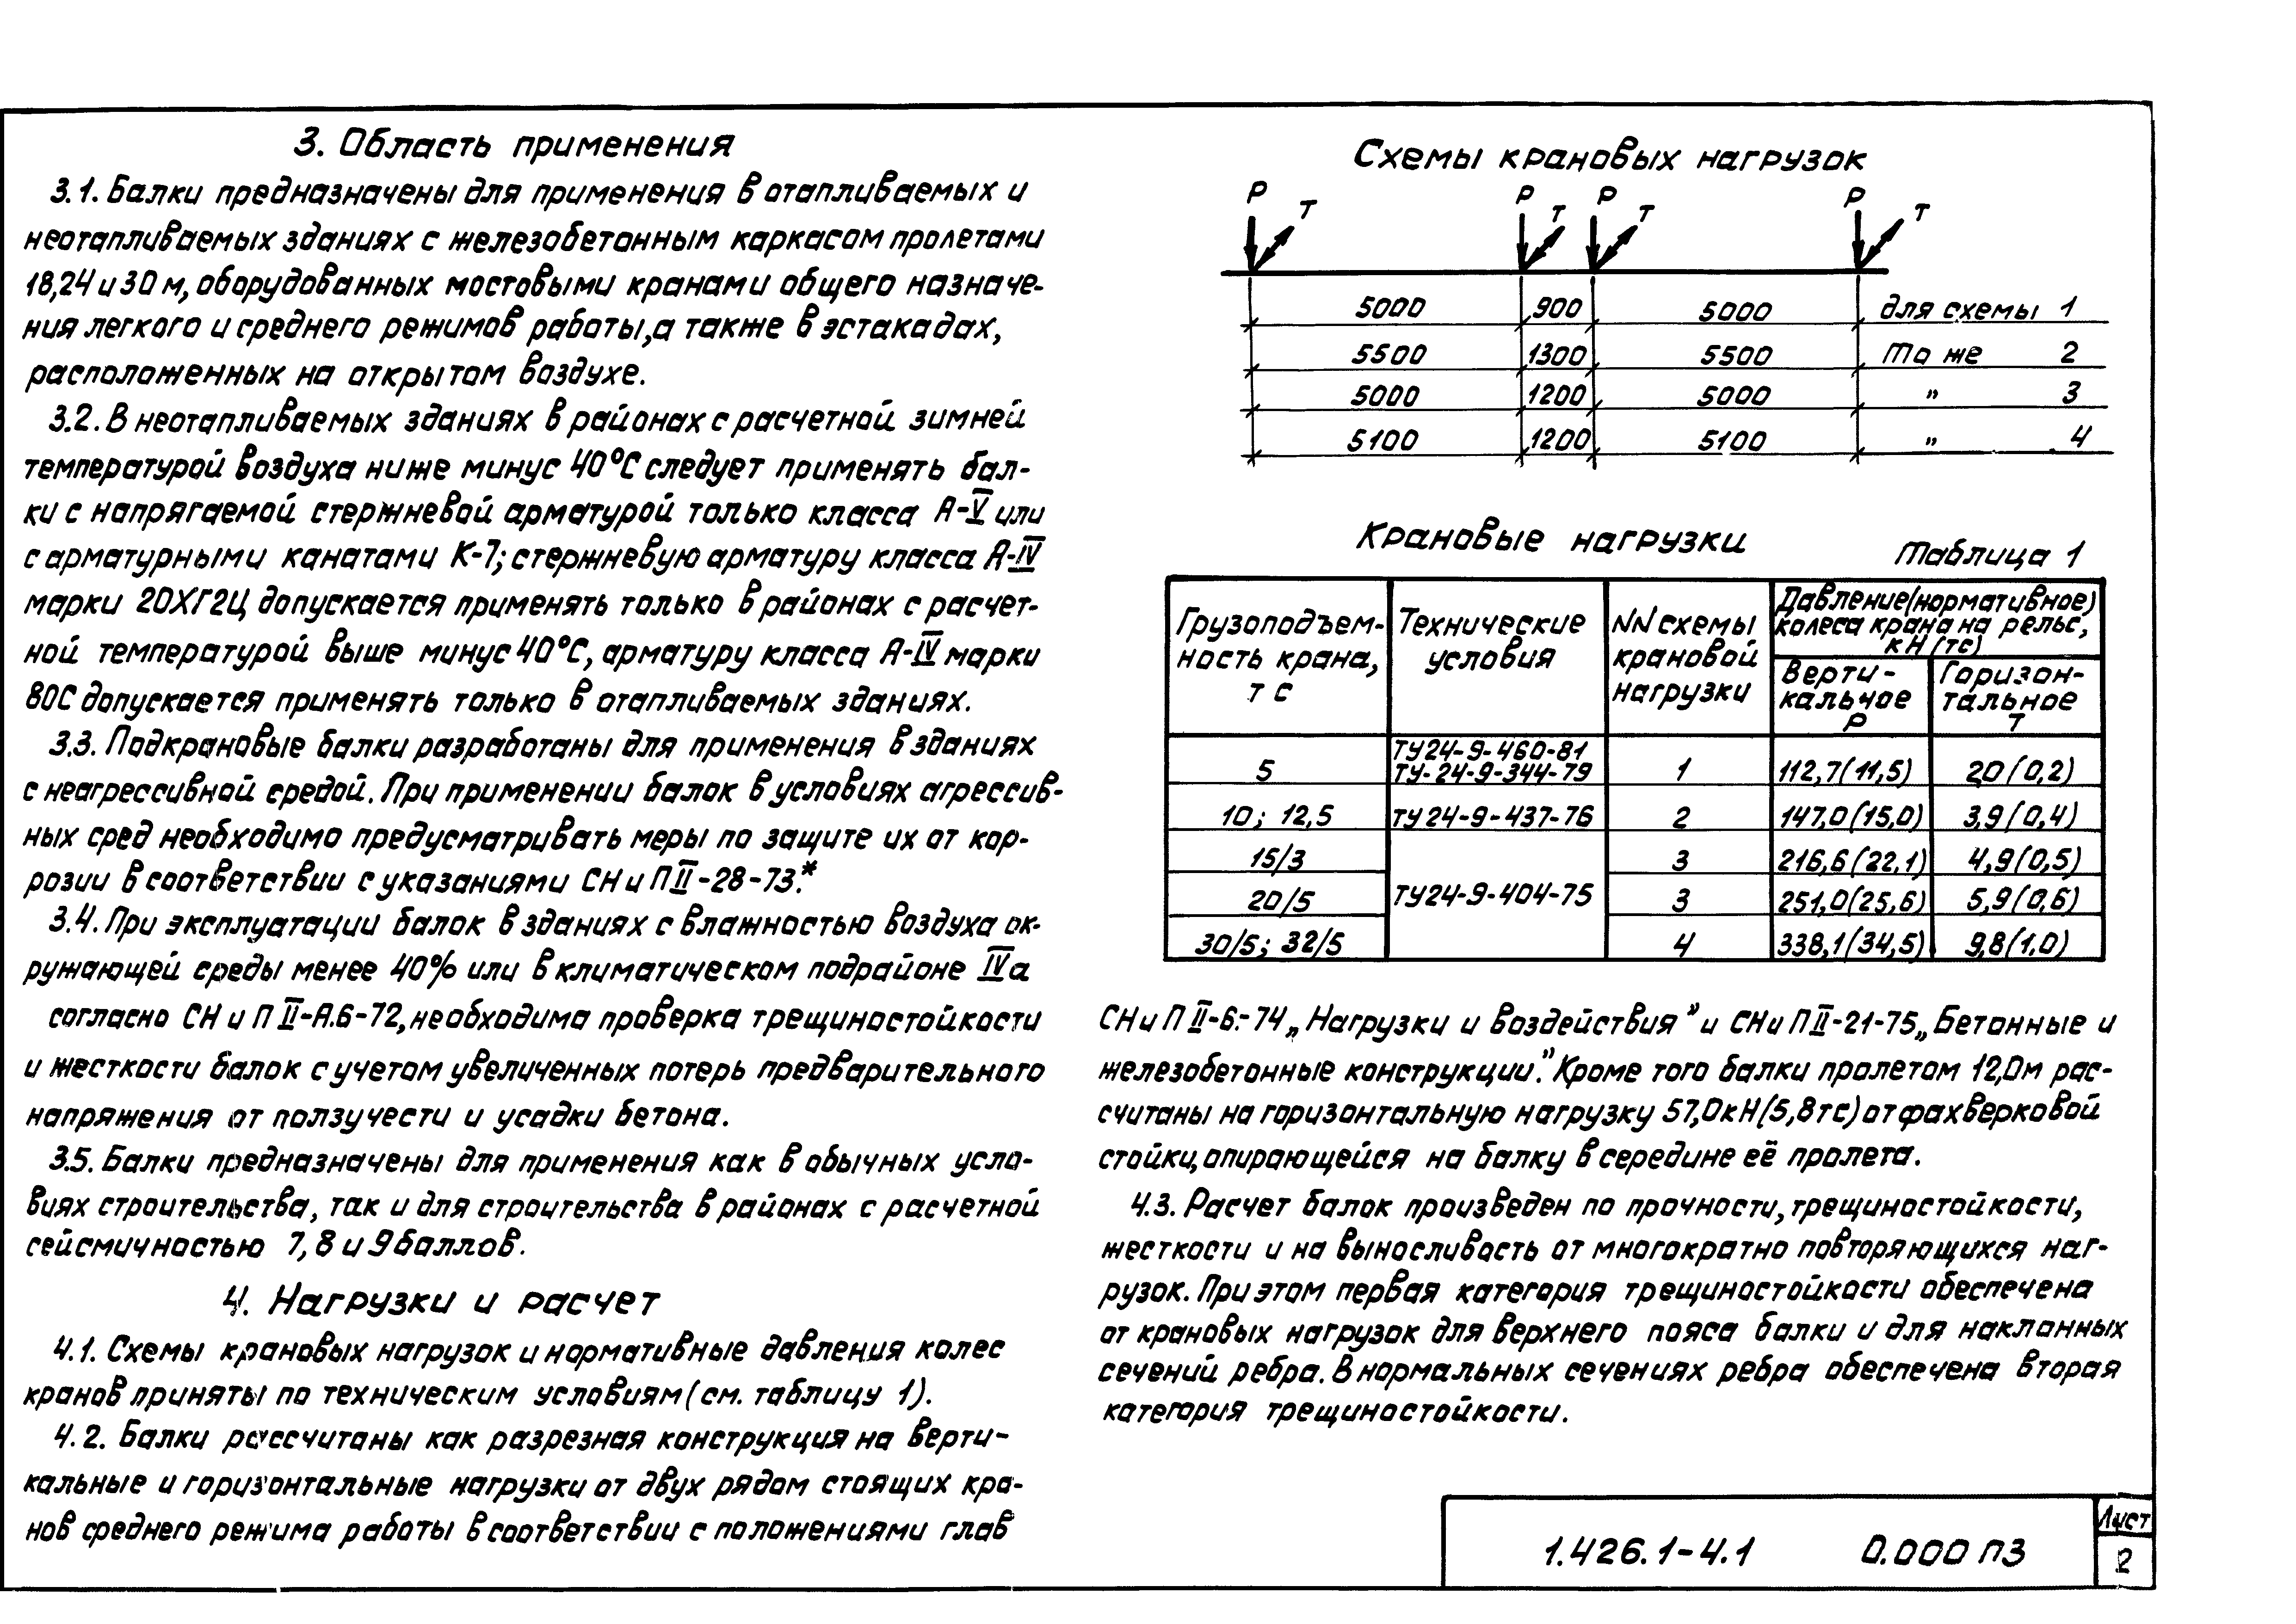 3. Область применения
3.1. Балки предназначены для применения в отапливаемых и
неотапливаемых зданиях с железобетонным каркасом пролетами
18,24 и 30 м, оборудованных мостовыми кранами общего назначе-
ния легкого и среднего режимов работы, а также в эстакадах,
расположенных на открытом воздухе.
3.2. В неотапливаемых зданиях в районах с расчетной зимней
температурой воздуха ниже минус 40°С следует применять бал-
ки с напрягаемой стержневой арматурой только класса А-V или
с арматурными канатами К-7; стержневую арматуру класса А-IV
марки 20ХГ2Ц допускается применять только в районах с расчет-
ной температурой выше минус 40°С, арматуру класса А-IV марки
80С допускается применять только в отапливаемых зданиях.
3.3. Подкрановые балки разработаны для применения в зданиях
с неагрессивной средой. При применении балок в условиях агрессив-
ных сред необходимо предусматривать меры по защите их от кор-
розии в соответствии с указаниями СНиП II-28-73.*
3.4. При эксплуатации балок в зданиях с влажностью воздуха ок-
ружающей среды менее 40% или в климатическом подрайоне IVа
согласно СНиП II-А.6-72, необходима проверка трещиностойкости
и жесткости балок с учетом увеличенных потерь предварительного
напряжения от ползучести и усадки бетона.
3.5. Балки предназначены для применения как в обычных усло-
виях строительства, так и для строительства в районах с расчетной
сейсмичностью 7, 8 и 9 баллов.
4. Нагрузки и расчет
4.1. Схемы крановых нагрузок и нормативные давления колес
кранов приняты по техническим условиям (см. таблицу 1).
4.2. Балки рассчитаны как разрезная конструкция на верти-
кальные и горизонтальные нагрузки от двух рядом стоящих кра-
нов среднего режима работы в соответствии с положениями глав
Схемы крановых нагрузок
Р Т Р Т Р Т Р Т
5000 900 5000 для схемы 1
5500 1300 5500 То же 2
5000 1200 5000 " 3
5100 1200 5100 " 4
Крановые нагрузки
Таблица 1
Грузоподъем-
ность крана,
тс
Технические
условия
NN схемы
крановой
нагрузки
Давление (нормативное)
колеса крана на рельс,
кН (тс)
Верти-
кальное
Р
Горизон-
тальное
Т
5 ТУ 24-9-460-81 ТУ-24-9-344-79 1 112,7(11,5) 20(0,2)
10; 12,5 ТУ 24-9-437-76 2 147,0(15,0) 3,9(0,4)
15/3 3 216,6(22,1) 4,9(0,5)
20/5 ТУ24-9-404-75 3 251,0(25,6) 5,9(0,6)
30/5; 32/5 4 338,1(34,5) 9,8(1,0)
СНиП II-6.-74 „Нагрузки и воздействия" и СНиП II-21-75 „Бетонные и
железобетонные конструкции." Кроме того балки пролетом 12,0м рас-
считаны на горизонтальную нагрузку 57,0кН(5,8тс) от фахверковой
стойки, опирающейся на балку в середине её пролета.
4.3. Расчет балок произведен по прочности, трещиностойкости,
жесткости и на выносливость от многократно повторяющихся наг-
рузок. При этом первая категория трещиностойкости обеспечена
от крановых нагрузок для верхнего пояса балки и для наклонных
сечений ребра. В нормальных сечениях ребра обеспечена вторая
категория трещиностойкости.
1.426.1-4.1 0.000 ПЗ
Лист
2